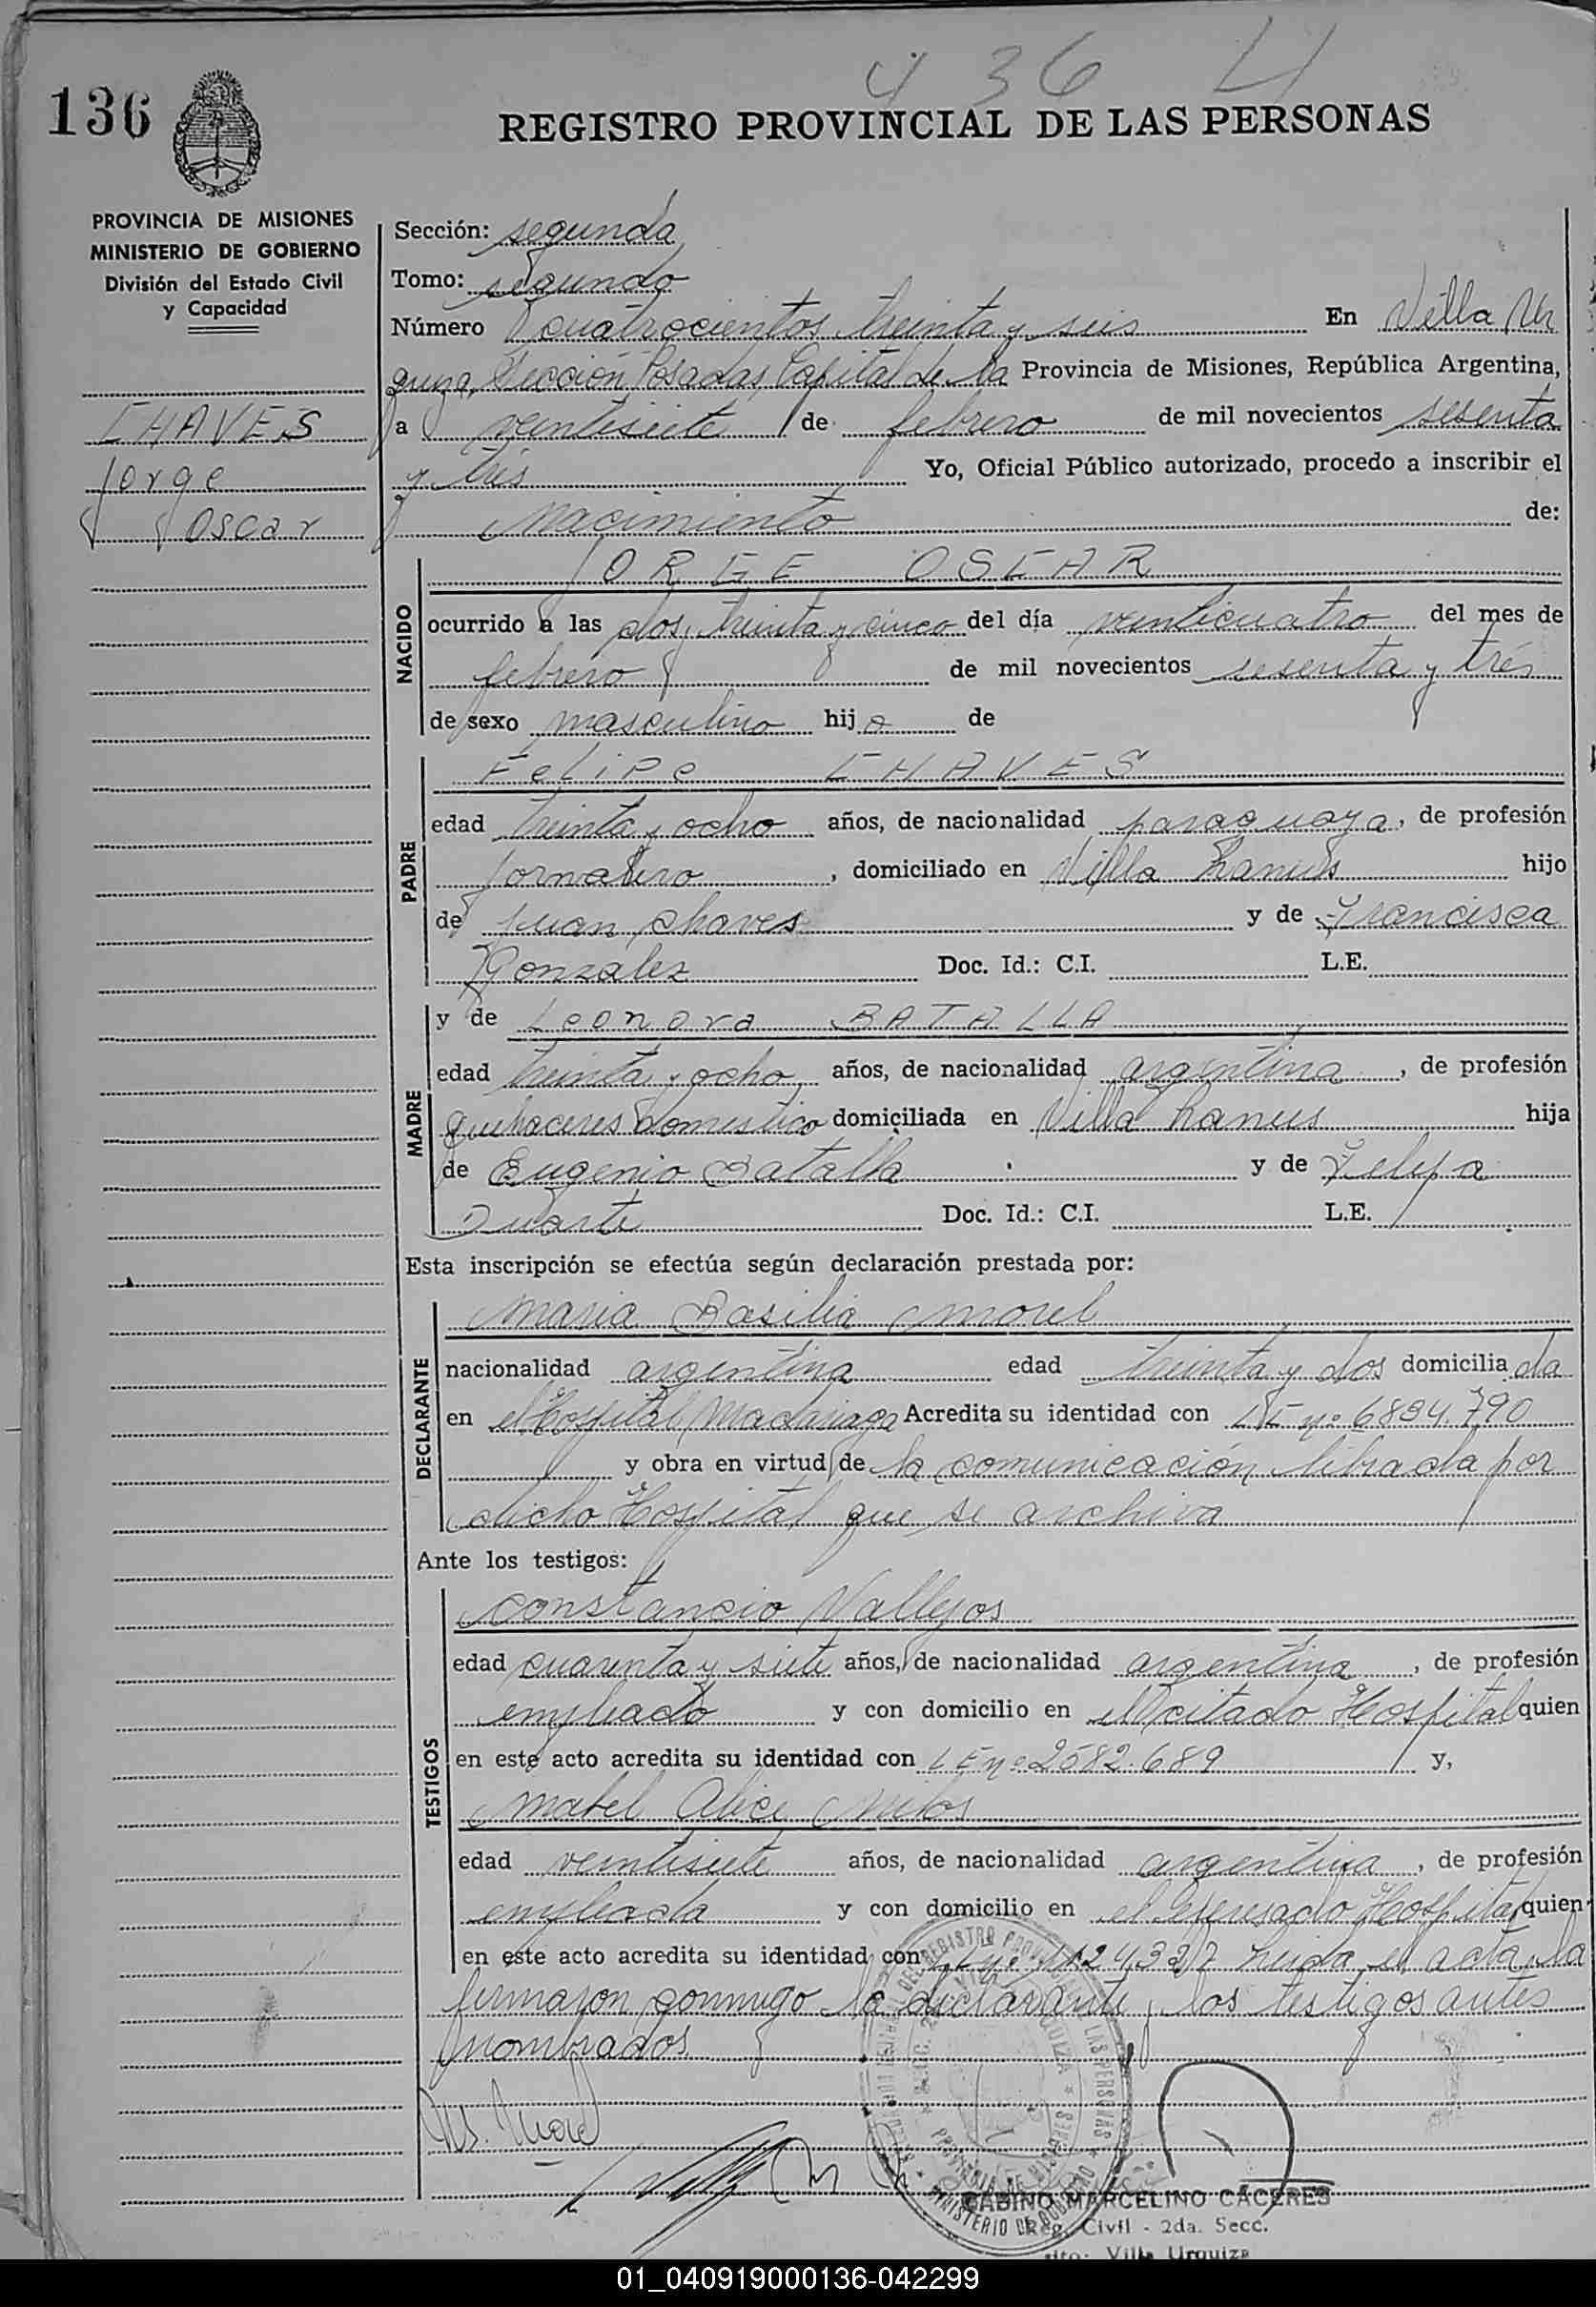 436
136
REGISTRO PROVINCIAL DE LAS PERSONAS
PROVINCIA DE MISIONES
MINISTERIO DE GOBIERNO
División del Estado Civil
y Capacidad
CHAVES
Jorge
Oscar
Sección: segunda
Tomo: segundo
Número cuatrocientos treinta y seis En Villa Ur
quiza, Sección Posadas, Capital de la Provincia de Misiones, República Argentina,
a veintisiete de febrero de mil novecientos sesenta
y tres Yo, Oficial Público autorizado, procedo a inscribir el
nacimiento de:
NACIDO
JORGE OSCAR
ocurrido a las dos, treinta y cinco del día veinticuatro del mes de
febrero de mil novecientos sesenta y trés
de sexo masculino hijo de
PADRE
Felipe CHAVES
edad treinta y ocho años, de nacionalidad paraguaya, de profesión
jornalero, domiciliado en Villa Lanus hijo
de Juan Chaves y de Francisca
Gonzalez Doc. Id.: C.I. L.E.
MADRE
y de Leonora BATALLA
edad treinta y ocho años, de nacionalidad argentina, de profesión
quehaceres domestico domiciliada en Villa Lanus hija
de Eugenio Batalla y de Felipa
Duarte Doc. Id.: C.I. L.E.
Esta inscripción se efectúa según declaración prestada por:
DECLARANTE
Maria Basilia Morel
nacionalidad argentina edad treinta y dos domiciliada
en el Hospital Madariaga Acredita su identidad con LE nº 6834.790
y obra en virtud de la comunicación librada por
dicho Hospital que se archiva
Ante los testigos:
TESTIGOS
Constancio Vallejos
edad cuarenta y siete años, de nacionalidad argentina, de profesión
empleado y con domicilio en el citado Hospital quien
en este acto acredita su identidad con LE nº 2582.689 y,
Mabel Alice
edad veintisiete años, de nacionalidad argentina, de profesión
empleada y con domicilio en el expresado Hospital quien
en este acto acredita su identidad con Leida el acta, la
firmaron conmigo la declarante y los testigos antes
nombrados.
Ms. Morel
GABINO MARCELINO CACERES
Reg. Civil - 2da. Secc.
Villa Urquiza
01_040919000136-042299